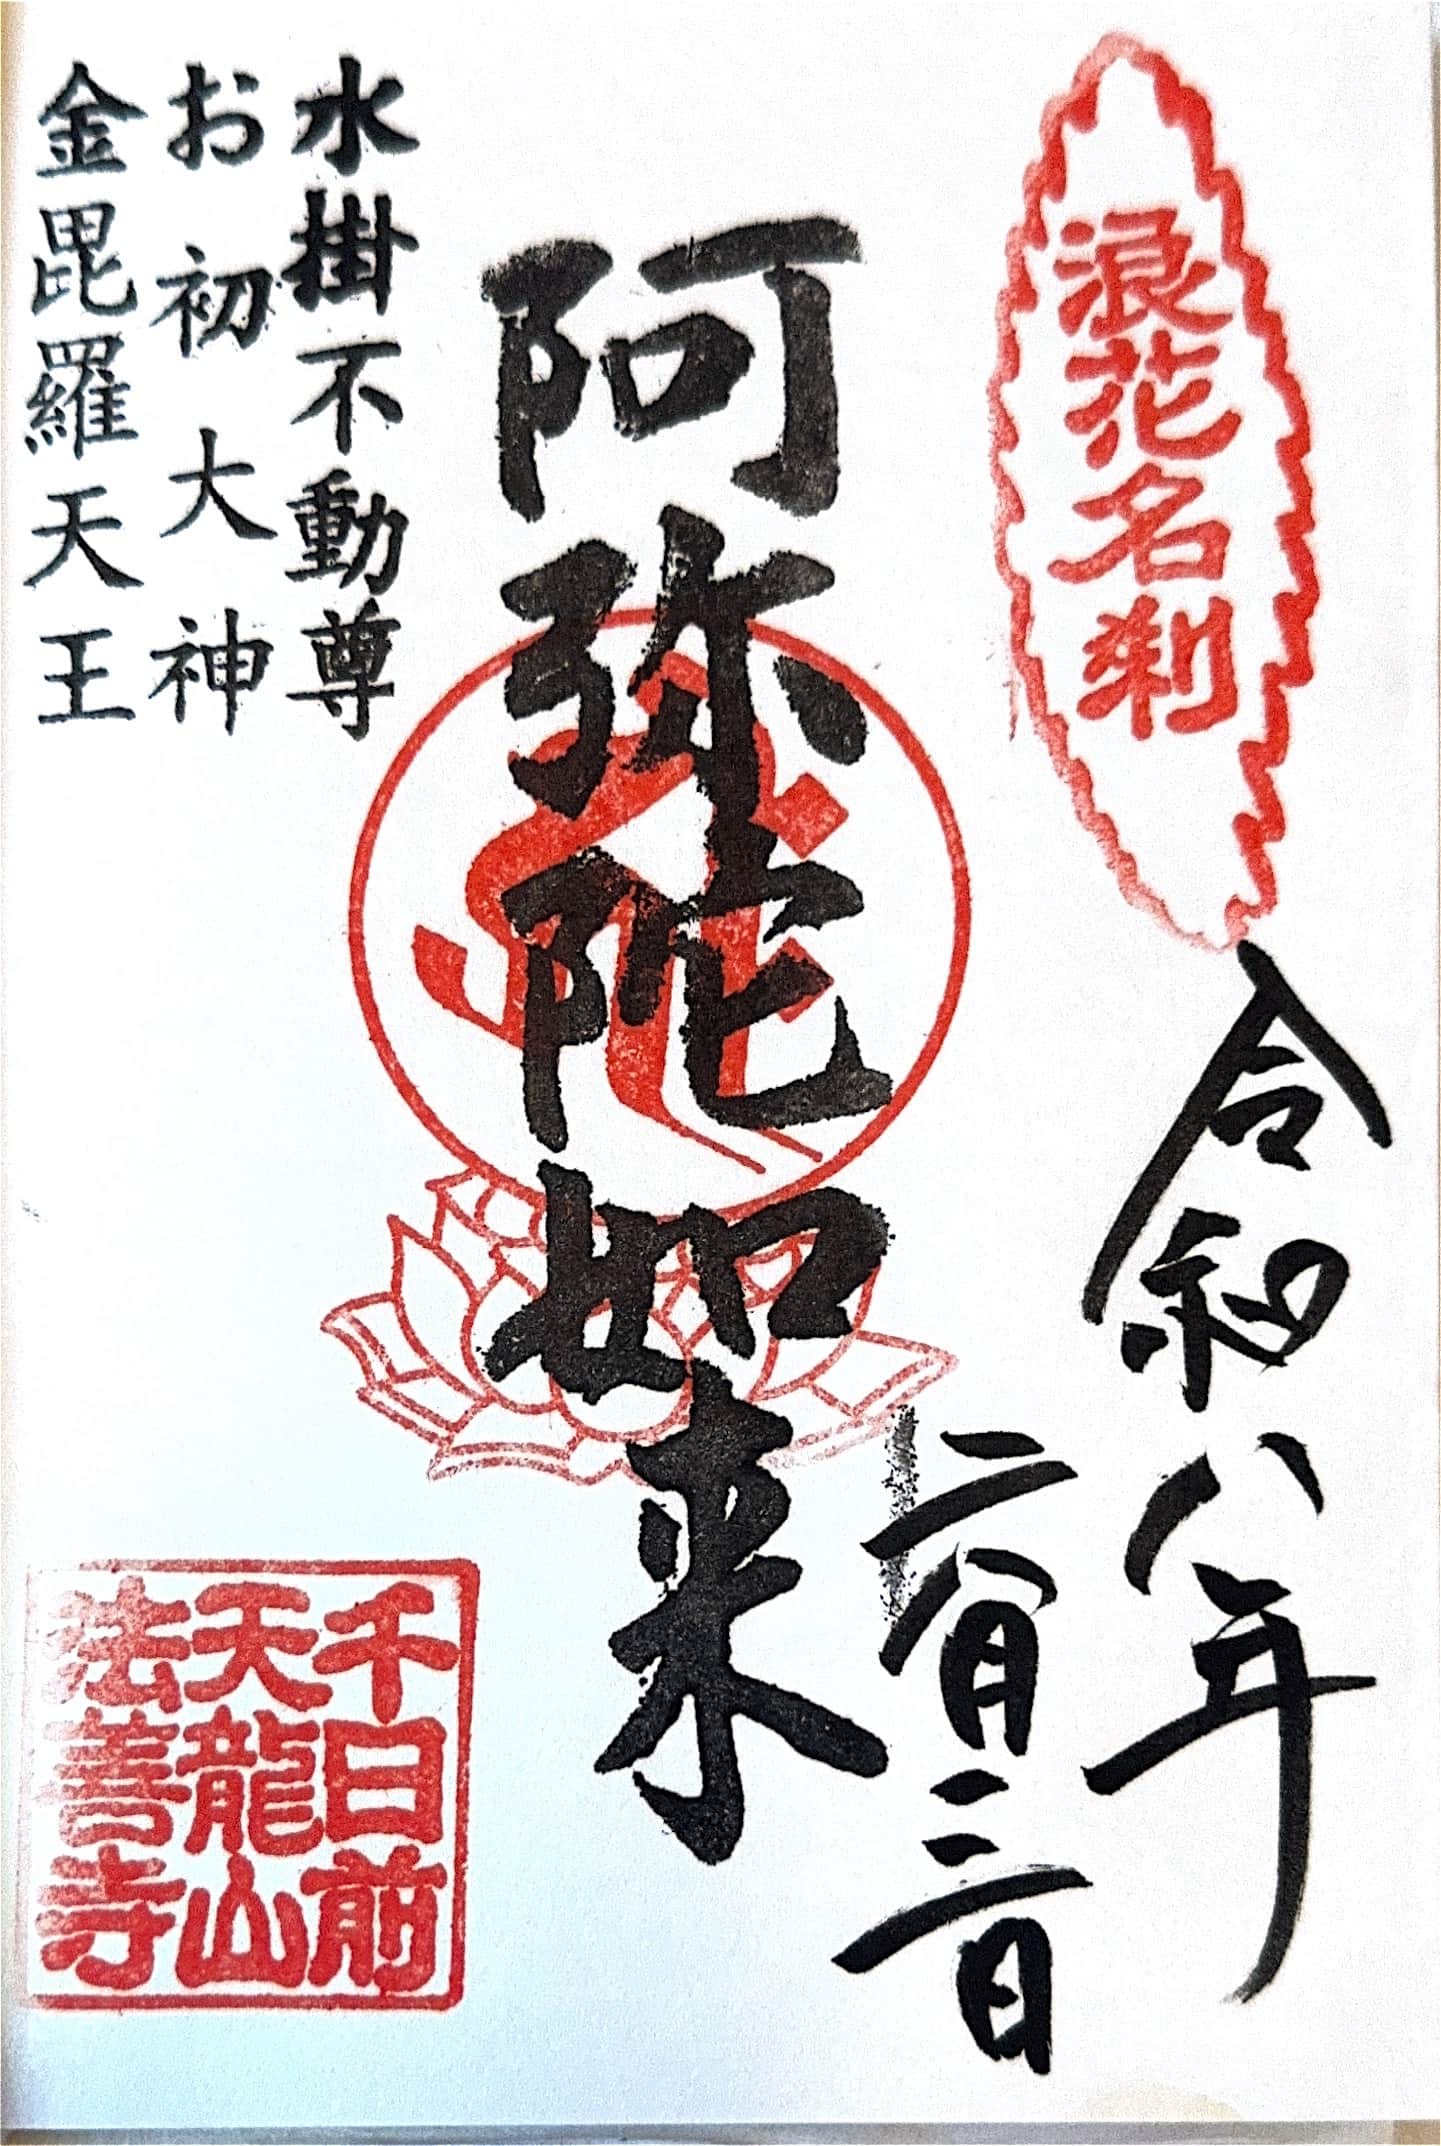 浪花名刹
令和八年
二月三日
阿弥陀如来
水掛不動尊
お初大神
金毘羅天王
千日前
天龍山
法善寺